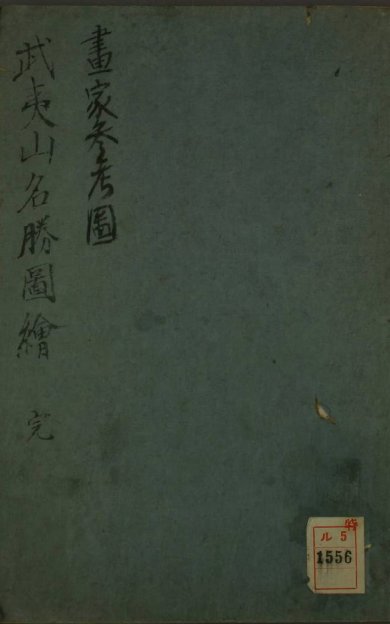 畫家參考圖
武夷山名勝圖繪 完
特
ル 5
1556